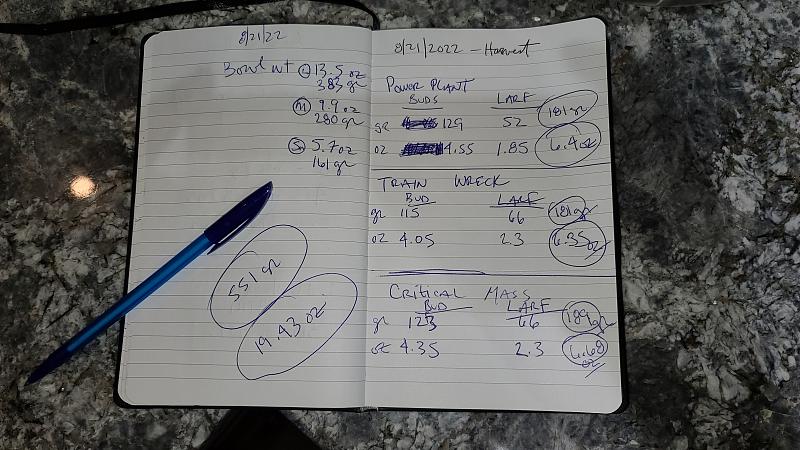 8/21/22
Bowl wt L 13.5 oz
383 gr
M 9.9 oz
280 gr
S 5.7 oz
161 gr
551 gr
19.43 oz
8/21/2022 - Harvest
Power Plant
Buds Larf
gr 129 52 181 gr
oz 4.55 1.85 6.4 oz
Train Wreck
Bud Larf
gr 115 66 181 gr
oz 4.05 2.3 6.35 oz
Critical Mass
Bud Larf
gr 123 66 189 gr
oz 4.35 2.3 6.68 oz